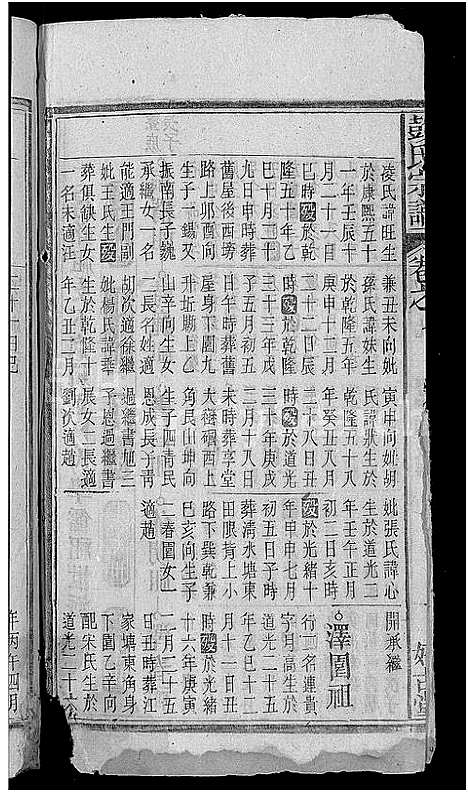 氏宗譜
卷之
凌氏諱旺生
於康熙五十
一年壬辰十
月二十一日
巳時歿於乾
隆五十年乙
巳十月二十
九日申時葬
舊屋後西塝
路上卯酉向
生子一錫爻
振南長子巍
承繼女一名
能適王門副
妣王氏生歿
葬俱缺生女
一名未適汪
兼丑未向妣
孫氏諱妹生
於乾隆五年
庚申十二月
二十二日辰
時歿於乾隆
三十三年戊
子五月初五
日午時葬舊
屋身下園九
升坵塝上乙
山辛向生女
三名長姓適
胡次適徐繼
妣楊氏諱乖
生於乾隆十
年乙丑二月
寅申向妣胡
氏諱狀生於
乾隆五十八
年癸丑八月
二十八日丑
時歿於道光
三十年庚戌
二月十八日
未時葬享堂
大樹磡西上
艮山坤向
生子四青民
恩成長子青
過繼書旭三
子恩過繼書
展女二長適
劉次適趙
妣張氏諱心
生於道光二
年壬午正月
初二日亥時
歿於光緒十
年甲申七月
初五日子時
葬清水塘東
田眠背上小
路下巽乾兼
巳亥向生子
二春園女一
適趙
開承繼
澤園祖
行一名連貴
字月高生於
道光二十五
年乙巳十二
月十一日丑
時歿於光緒
十六年庚寅
二月二十五
日丑時葬江
家塘東角身
下園乙辛向
配宋氏生於
道光二十六
年丙午四月